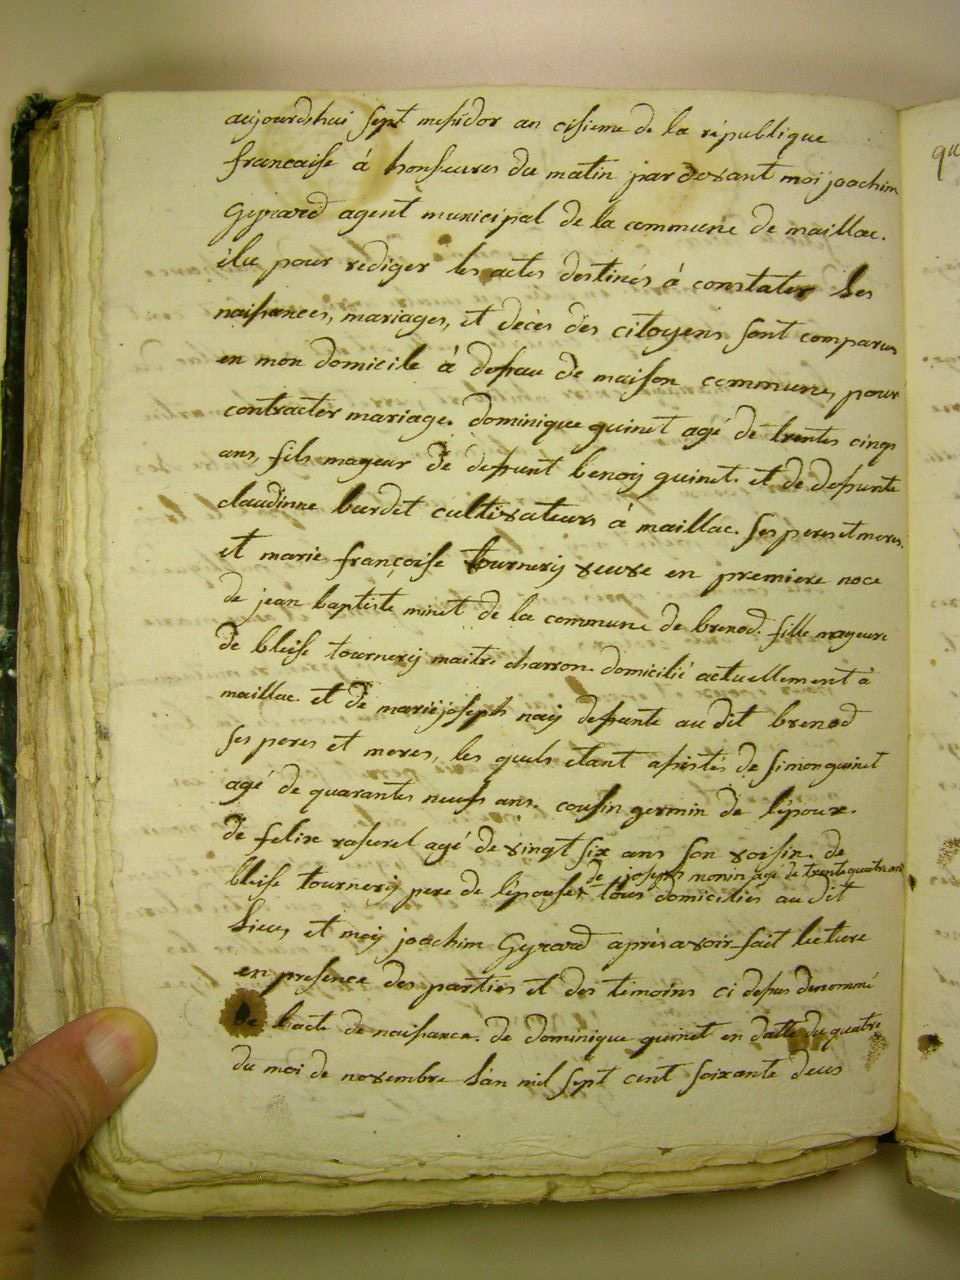 aujourdhui sept messidor an cisieme de la république
francaise á honseures du matin par devant moi joachim
Gyrard agent municipal de la commune de maillac.
élu pour rediger les actes destinés á constater les
naissances, mariages, et décès des citoyens sont comparus
en mon domicile á defau de maison commune, pour
contracter mariage. dominique guinet agé de trentes cinqs
ans, fils mayeur de defunt benoij guinet. et de defunte
claudinne burdet cultivateurs á maillac. ses peres et meres.
et marie françoise tournerij veuve en premiere noce
de jean baptiste minet de la commune de brenod. fille mayeure
de bleise tournerij maitre charron. domicilié actuellement á
maillac et de marie joseph naij defunte au dit brenod
ses peres et meres, les quels etant assistés de simon guinet
agé de quarantes neufs ans. cousin germin de l'époux.
de felix rasurel agé de vingt six ans son voisin. de
de joseph nonin agé de trente quatre ans
bleise tournerij pere de l'épouse tous domicilies au dit
lieu, et moij joachim Gyrard après avoir fait lecture
en presence des parties et des temoins ci dessus denommé
de l'acte de naissance. de dominique guinet en datte du quatre
du moi de novembre l'an mil sept cent soixante deus
qu